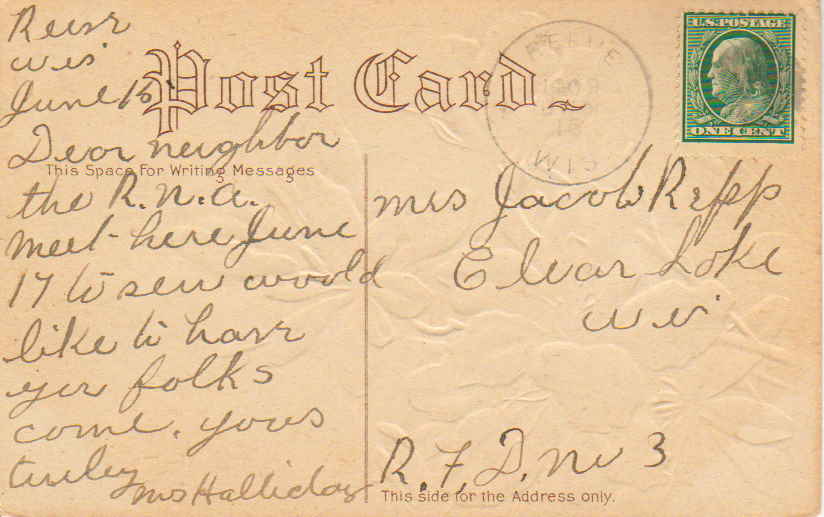 Reeve
Wis
June 16
Post Card
REEVE
1909
WIS
U.S. POSTAGE
ONE CENT
Dear neighbor
This Space For Writing Messages
the R.N.A.
meet here June
17 to sew would
like to have
yer folks
come. yours
truley
Mrs Halliday
Mrs Jacob Repp
Clear Lake
Wis
R. F. D. No 3
This side for the Address only.